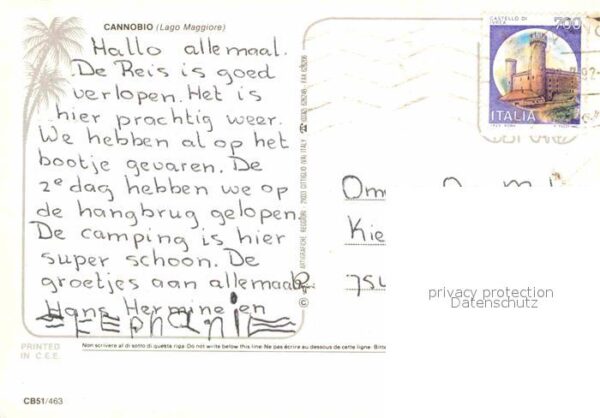 CANNOBIO (Lago Maggiore)
Hallo allemaal.
De Reis is goed
verlopen. Het is
hier prachtig weer.
We hebben al op het
bootje gevaren. De
2e dag hebben we op
de hangbrug gelopen.
De camping is hier
super schoon. De
groetjes aan allemaal
Hans Hermine en
Stephanie
CASTELLO DI
IVREA
700
ITALIA
92
Om
Kie
75
privacy protection
Datenschutz
PRINTED
IN C.E.E.
Non scrivere al di sotto di questa riga. Do not write below this line. Ne pas écrire au dessous de cette ligne. Bitte
CB51/463